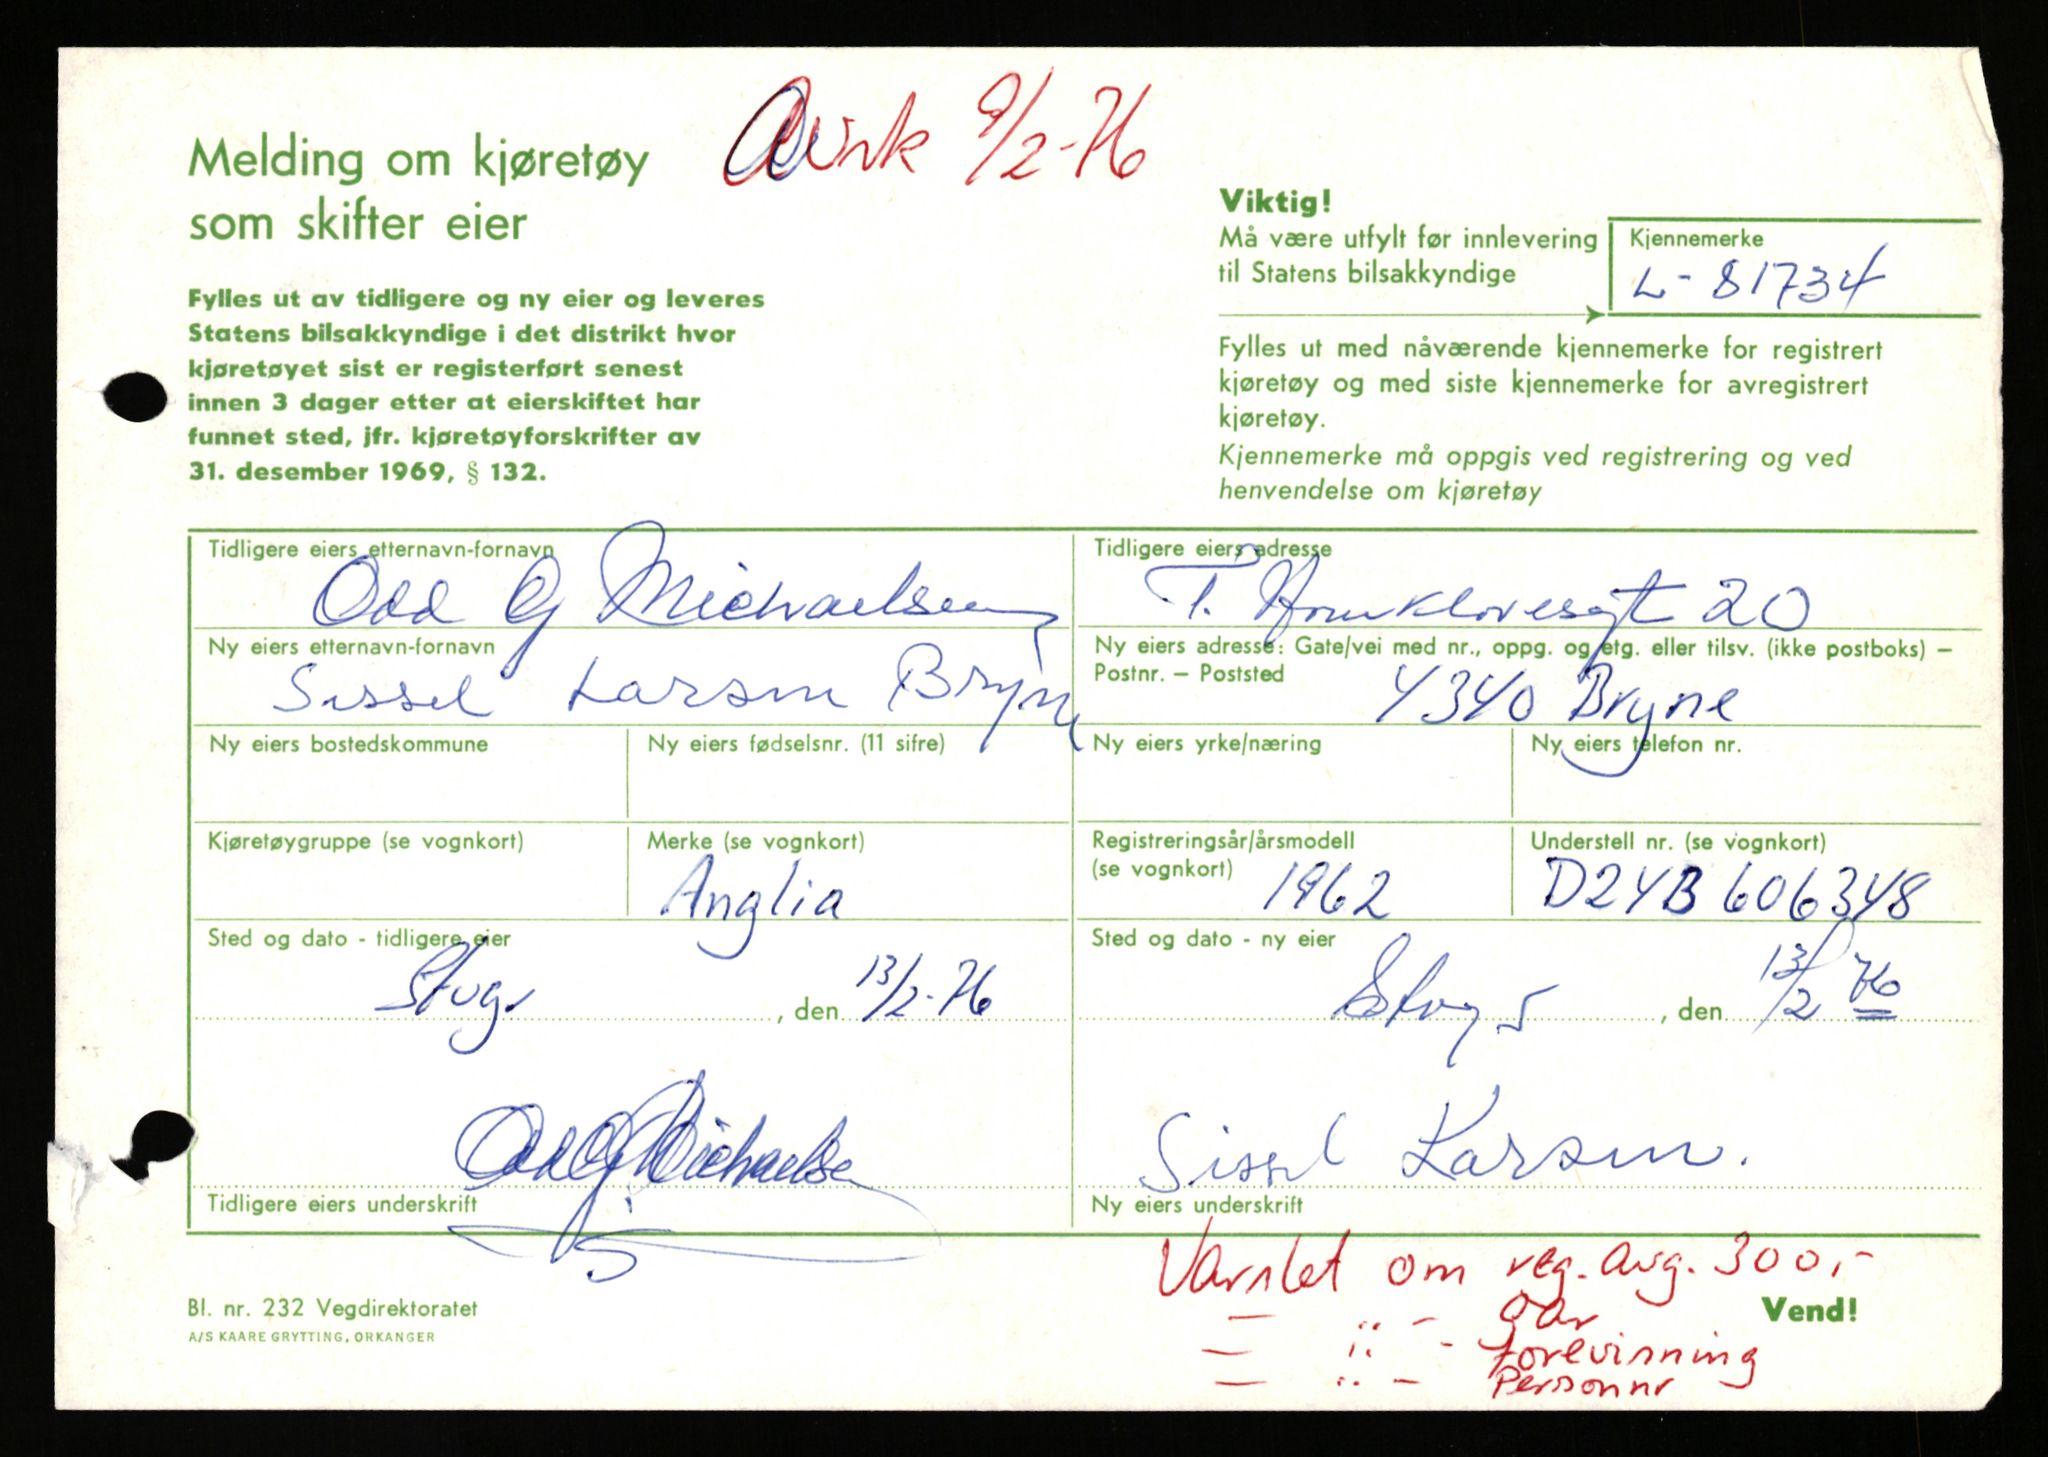 Avink 9/2-76
Melding om kjøretøy
som skifter eier
Fylles ut av tidligere og ny eier og leveres
Statens bilsakkyndige i det distrikt hvor
kjøretøyet sist er registerført senest
innen 3 dager etter at eierskiftet har
funnet sted, jfr. kjøretøyforskrifter av
31. desember 1969, § 132.
Viktig!
Må være utfylt før innlevering
til Statens bilsakkyndige
Kjennemerke
L-81734
Fylles ut med nåværende kjennemerke for registrert
kjøretøy og med siste kjennemerke for avregistrert
kjøretøy.
Kjennemerke må oppgis ved registrering og ved
henvendelse om kjøretøy
Tidligere eiers etternavn-fornavn
Odd G Michaelsen
Tidligere eiers adresse
T. 20
Ny eiers etternavn-fornavn
Sissel Larsen Bryne
Ny eiers adresse: Gate/vei med nr., oppg. og etg. eller tilsv. (ikke postboks) –
Postnr. – Poststed
4340 Bryne
Ny eiers bostedskommune
Ny eiers fødselsnr. (11 sifre)
Ny eiers yrke/næring
Ny eiers telefon nr.
Kjøretøygruppe (se vognkort)
Merke (se vognkort)
Anglia
Registreringsår/årsmodell
(se vognkort)
1962
Understell nr. (se vognkort)
D24B606348
Sted og dato - tidligere eier
Stvgr, den 13/2-76
Sted og dato - ny eier
Stvgr, den 13/2 76
Odd G Michaelsen
Tidligere eiers underskrift
Sissel Larsen.
Ny eiers underskrift
Varslet om reg. avg. 300,-
— " -
— " - forevisning
— " - Personnr
Vend!
Bl. nr. 232 Vegdirektoratet
A/S KAARE GRYTTING, ORKANGER